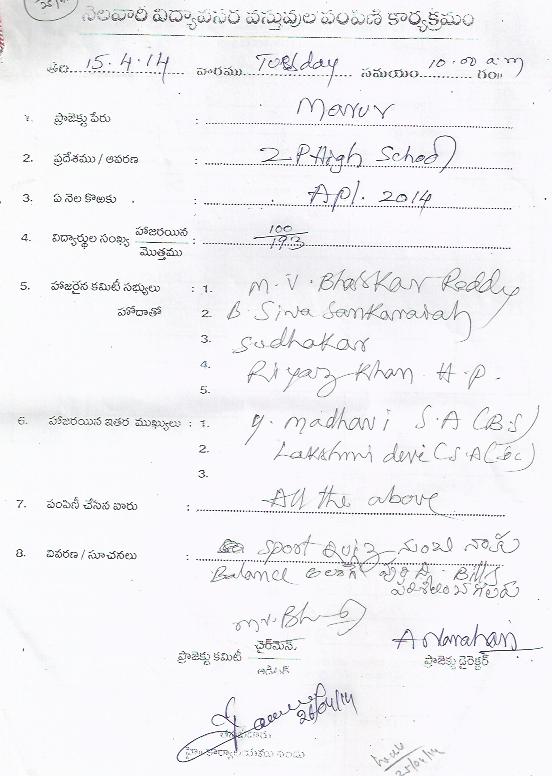 25/4
నెలవారి విద్యావసర వస్తువుల పంపిణి కార్యక్రమం
తేది 15.4.14 వారము Tuesday సమయం 10.00 a.m గం॥
1. ప్రాజెక్టు పేరు : Marur
2. ప్రదేశము / ఆవరణ : Z-P High School
3. ఏ నెల కొఱకు : Apl. 2014
4. విద్యార్థుల సంఖ్య హాజరయిన / మొత్తము : 100/193
5. హాజరైన కమిటీ సభ్యులు : 1. M.V. Bhaskar Reddy
హోదాతో 2. B. Siva Sankaraiah
3. Sudhakar
4. Riyaz Khan H.P.
5.
6. హాజరయిన ఇతర ముఖ్యులు : 1. Y. Madhavi S.A (B.S)
2. Lakshmi devi (S.A (Soc)
3.
7. పంపిణీ చేసిన వారు : All the above
8. వివరణ / సూచనలు : Sport Quiz నుంచి నాకు
Balance అలాగే పూర్తి A. Bills
పరిశీలించగలరు
M.V.Bh
ప్రాజెక్టు కమిటీ ఛైర్మెన్
ప్రాజెక్టు డైరెక్టర్
26/04/14
25/04/14